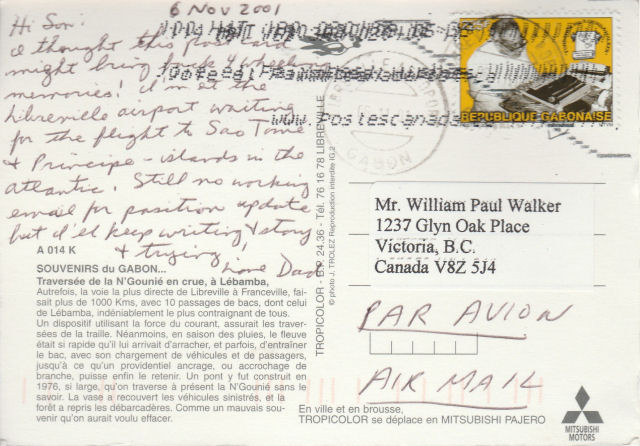 6 Nov 2001
Hi Son:
I thought this post card
might bring back 4 wheeling
memories! I'm at the
Libreville airport waiting
for the flight to Sao Tome
& Principe - islands in the
Atlantic. Still no working
email for position update
but I'll keep writing & stay
& trying!
Love Dad
www.postescanada
GABON
REPUBLIQUE GABONAISE
Mr. William Paul Walker
1237 Glyn Oak Place
Victoria, B.C.
Canada V8Z 5J4
PAR AVION
AIR MAIL
A 014 K
SOUVENIRS du GABON...
Traversée de la N'Gounié en crue, à Lébamba,
Autrefois, la voie la plus directe de Libreville à Franceville, fai-
sait plus de 1000 Kms, avec 10 passages de bacs, dont celui
de Lébamba, indéniablement le plus contraignant de tous.
Un dispositif utilisant la force du courant, assurait les traver-
sées de la traille. Néanmoins, en saison des pluies, le fleuve
était si rapide qu'il lui arrivait d'arracher, et parfois, d'entraîner
le bac, avec son chargement de véhicules et de passagers,
jusqu'à ce qu'un providentiel ancrage, ou accrochage de
branche, puisse enfin le retenir. Un pont y fut construit en
1976, si large, qu'on traverse à présent la N'Gounié sans le
savoir. La vase a recouvert les véhicules sinistrés, et la
forêt a repris les débarcadères. Comme un mauvais sou-
venir qu'on aurait voulu effacer.
TROPICOLOR - B.P. 24.36 - Tél. 76 16 78 LIBREVILLE
© photo J. TROLEZ Reproduction interdite IG.2
En ville et en brousse,
TROPICOLOR se déplace en MITSUBISHI PAJERO
MITSUBISHI
MOTORS